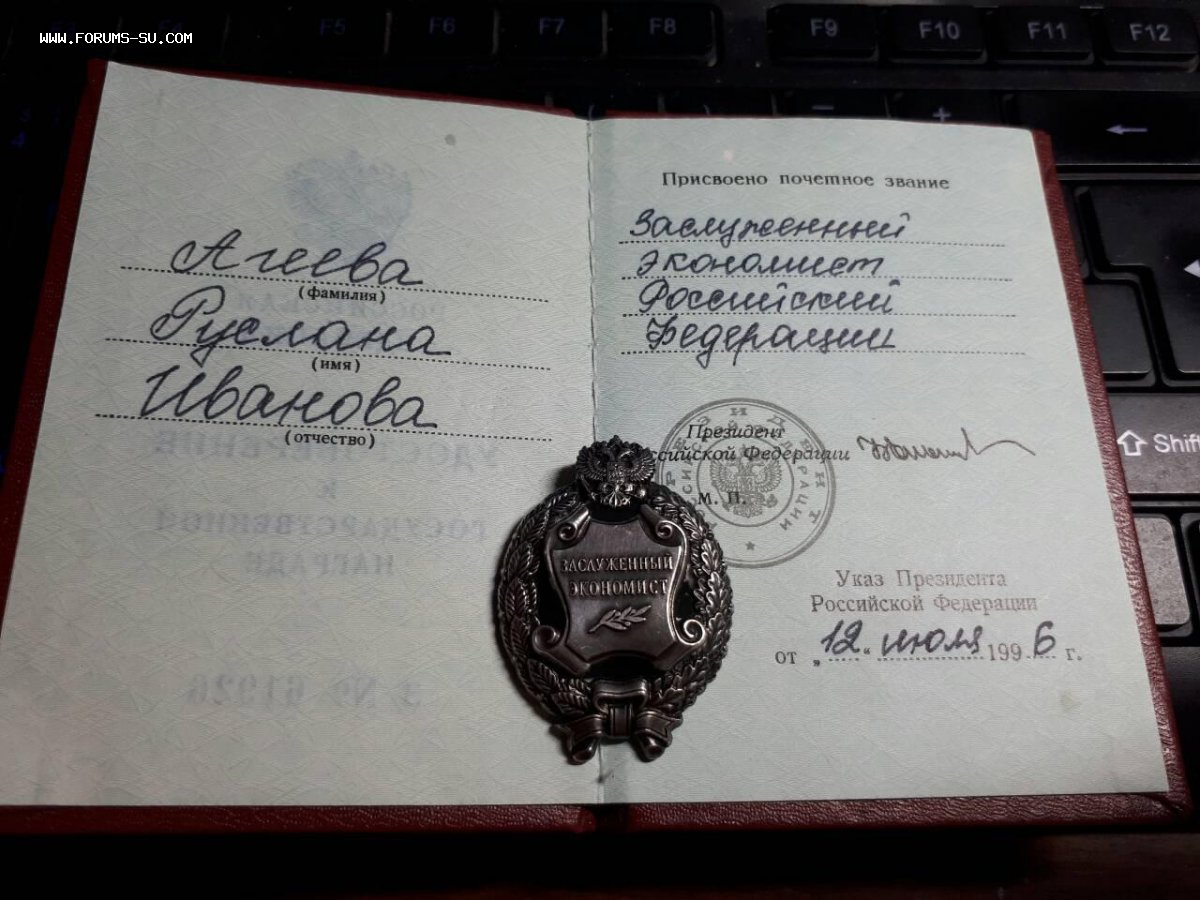 WWW.FORUMS-SU.COM
F5 F6 F7 F8 F9 F10 F11 F12
Агеева
(фамилия)
Руслана
(имя)
Иванова
(отчество)
Присвоено почетное звание
Заслуженный
экономист
Российский
Федерации
Президент
Российской Федерации
М. П.
ЗАСЛУЖЕННЫЙ
ЭКОНОМИСТ
Указ Президента
Российской Федерации
от „12“ июля 1996 г.
Shift